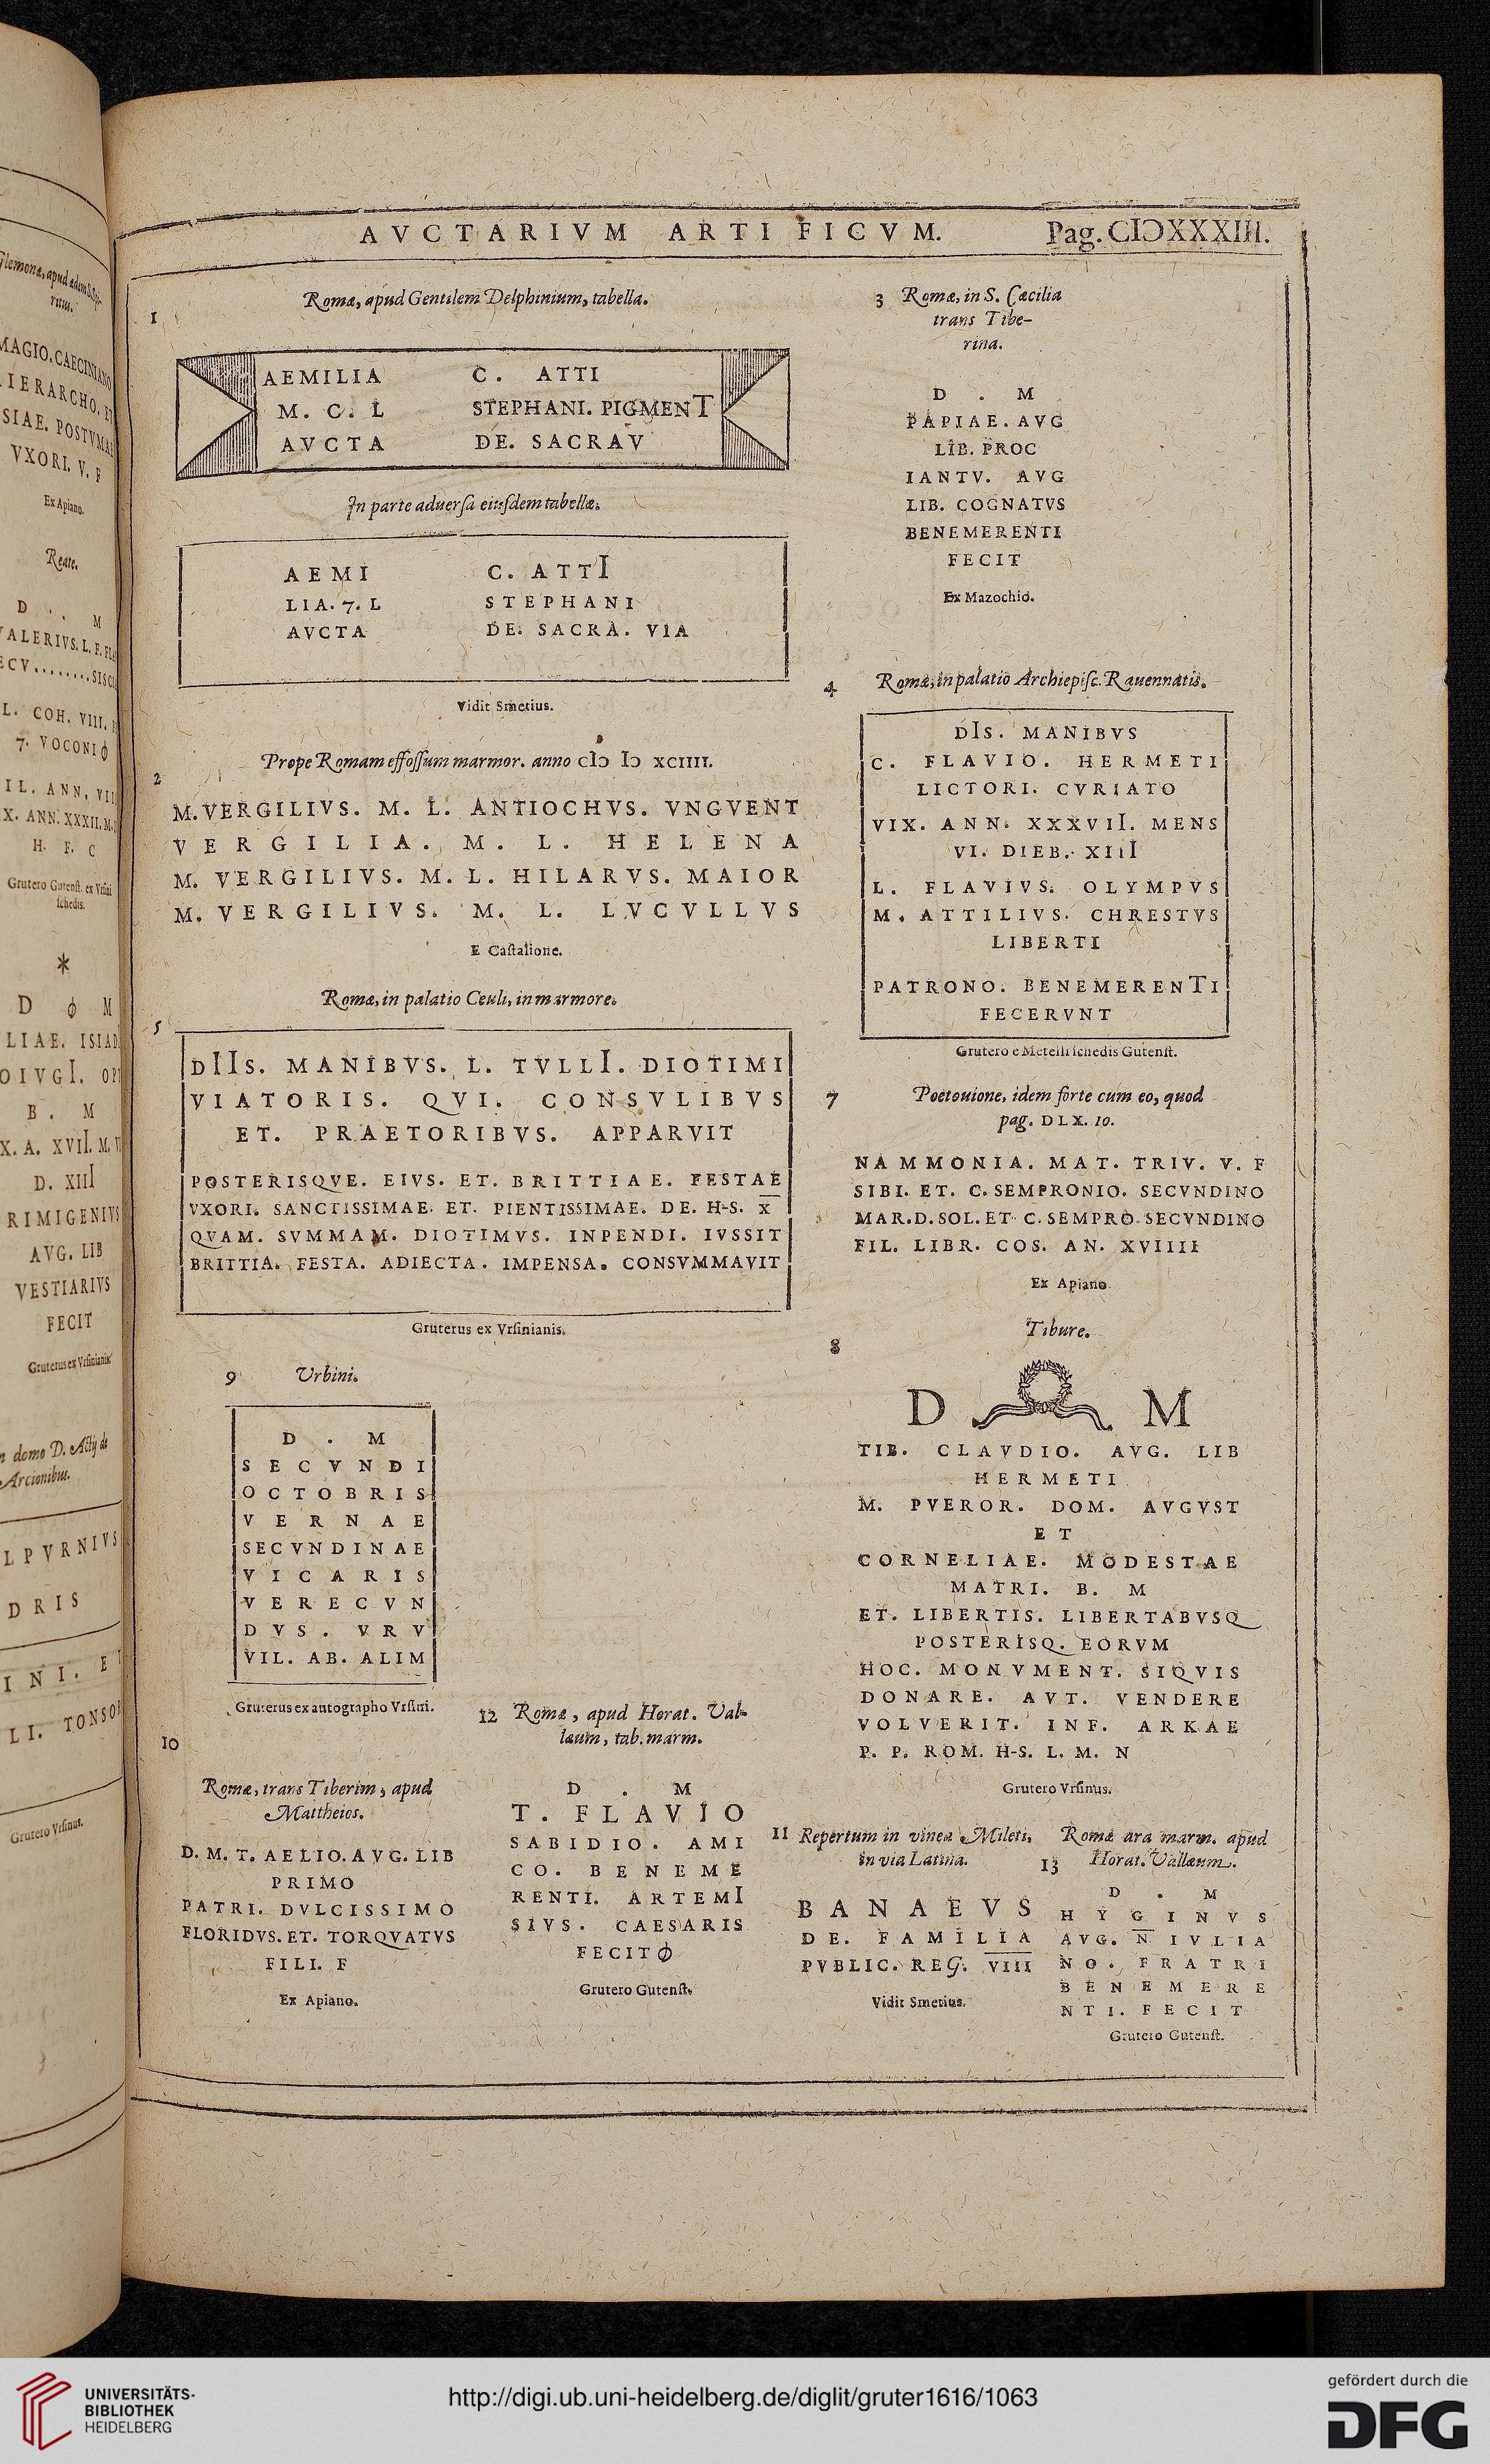 AVCTARIVM ARTIFICVM. Pag. CIↃXXXIII.
1
Romæ, apud Gentilem Delphinium, tabella.
AEMILIA C. ATTI
M. C. L STEPHANI. PIGMENT
AVCTA DE. SACRAV
In parte aduersa eiusdem tabellæ.
AEMI C. ATTI
LIA. 7. L STEPHANI
AVCTA DE. SACRA. VIA
Vidit Smetius.
2
Prope Romam effossum marmor. anno cIↄ Iↄ XCIIII.
M. VERGILIVS. M. L. ANTIOCHVS. VNGVENT
VERGILIA. M. L. HELENA
M. VERGILIVS. M. L. HILARVS. MAIOR
M. VERGILIVS. M. L. LVCVLLVS
E Castalione.
3 Romæ, in S. Cæcilia
trans Tibe-
rina.
D . M
PAPIAE. AVG
LIB. PROC
IANTV. AVG
LIB. COGNATVS
BENEMERENTI
FECIT
Ex Mazochio.
4 Romæ, in palatio Archiepisc. Rauennatis.
DIS. MANIBVS
C. FLAVIO. HERMETI
LICTORI. CVRIATO
VIX. ANN. XXXVII. MENS
VI. DIEB. XIII
L. FLAVIVS. OLYMPVS
M. ATTILIVS. CHRESTVS
LIBERTI
PATRONO. BENEMERENTI
FECERVNT
Grutero e Metelli schedis Gutenst.
5
Romæ, in palatio Ceuli, in marmore.
DIIS. MANIBVS. L. TVLLI. DIOTIMI
VIATORIS. QVI. CONSVLIBVS
ET. PRAETORIBVS. APPARVIT
POSTERISQVE. EIVS. ET. BRITTIAE. FESTAE
VXORI. SANCTISSIMAE. ET. PIENTISSIMAE. DE. H-S. X
QVAM. SVMMAM. DIOTIMVS. INPENDI. IVSSIT
BRITTIA. FESTA. ADIECTA. IMPENSA. CONSVMMAVIT
Gruterus ex Vrsinianis.
7 Poetouione, idem forte cum eo, quod
pag. DLX. 10.
NAMMONIA. MAT. TRIV. V. F
SIBI. ET. C. SEMPRONIO. SECVNDINO
MAR. D. SOL. ET C. SEMPRO. SECVNDINO
FIL. LIBR. COS. AN. XVIIII
Ex Apiano
8
Tibure.
D M
TIB. CLAVDIO. AVG. LIB
HERMETI
M. PVEROR. DOM. AVGVST
ET
CORNELIAE. MODESTAE
MATRI. B. M
ET. LIBERTIS. LIBERTABVSQ
POSTERISQ. EORVM
HOC. MONVMENT. SIQVIS
DONARE. AVT. VENDERE
VOLVERIT. INF. ARKAE
P. P. ROM. H-S. L. M. N
Grutero Vrsinus.
9 Urbini.
D . M
SECVNDI
OCTOBRIS
VERNAE
SECVNDINAE
VICARIS
VERECVN
DVS. VRV
VIL. AB. ALIM
Gruterus ex autographo Vrsini.
10
Romæ, trans Tiberim, apud
Mattheios.
D. M. T. AELIO. AVG. LIB
PRIMO
PATRI. DVLCISSIMO
FLORIDVS. ET. TORQVATVS
FILI. F
Ex Apiano.
12 Romæ, apud Horat. Val-
læum, tab. marm.
D . M
T. FLAVIO
SABIDIO. AMI
CO. BENEME
RENTI. ARTEMI
SIVS. CAESARIS
FECIT
Grutero Gutenst.
11 Repertum in vinea Mileti,
in via Latina.
BANAEVS
DE. FAMILIA
PVBLIC. REG. VIII
Vidit Smetius.
13
Romæ ara marm. apud
Horat. Vallæum.
D . M
HYGINVS
AVG. N IVLIA
NO. FRATRI
BENEMERE
NTI. FECIT
Grutero Gutenst.
UNIVERSITÄTS-
BIBLIOTHEK
HEIDELBERG
http://digi.ub.uni-heidelberg.de/diglit/gruter1616/1063
gefördert durch die
DFG